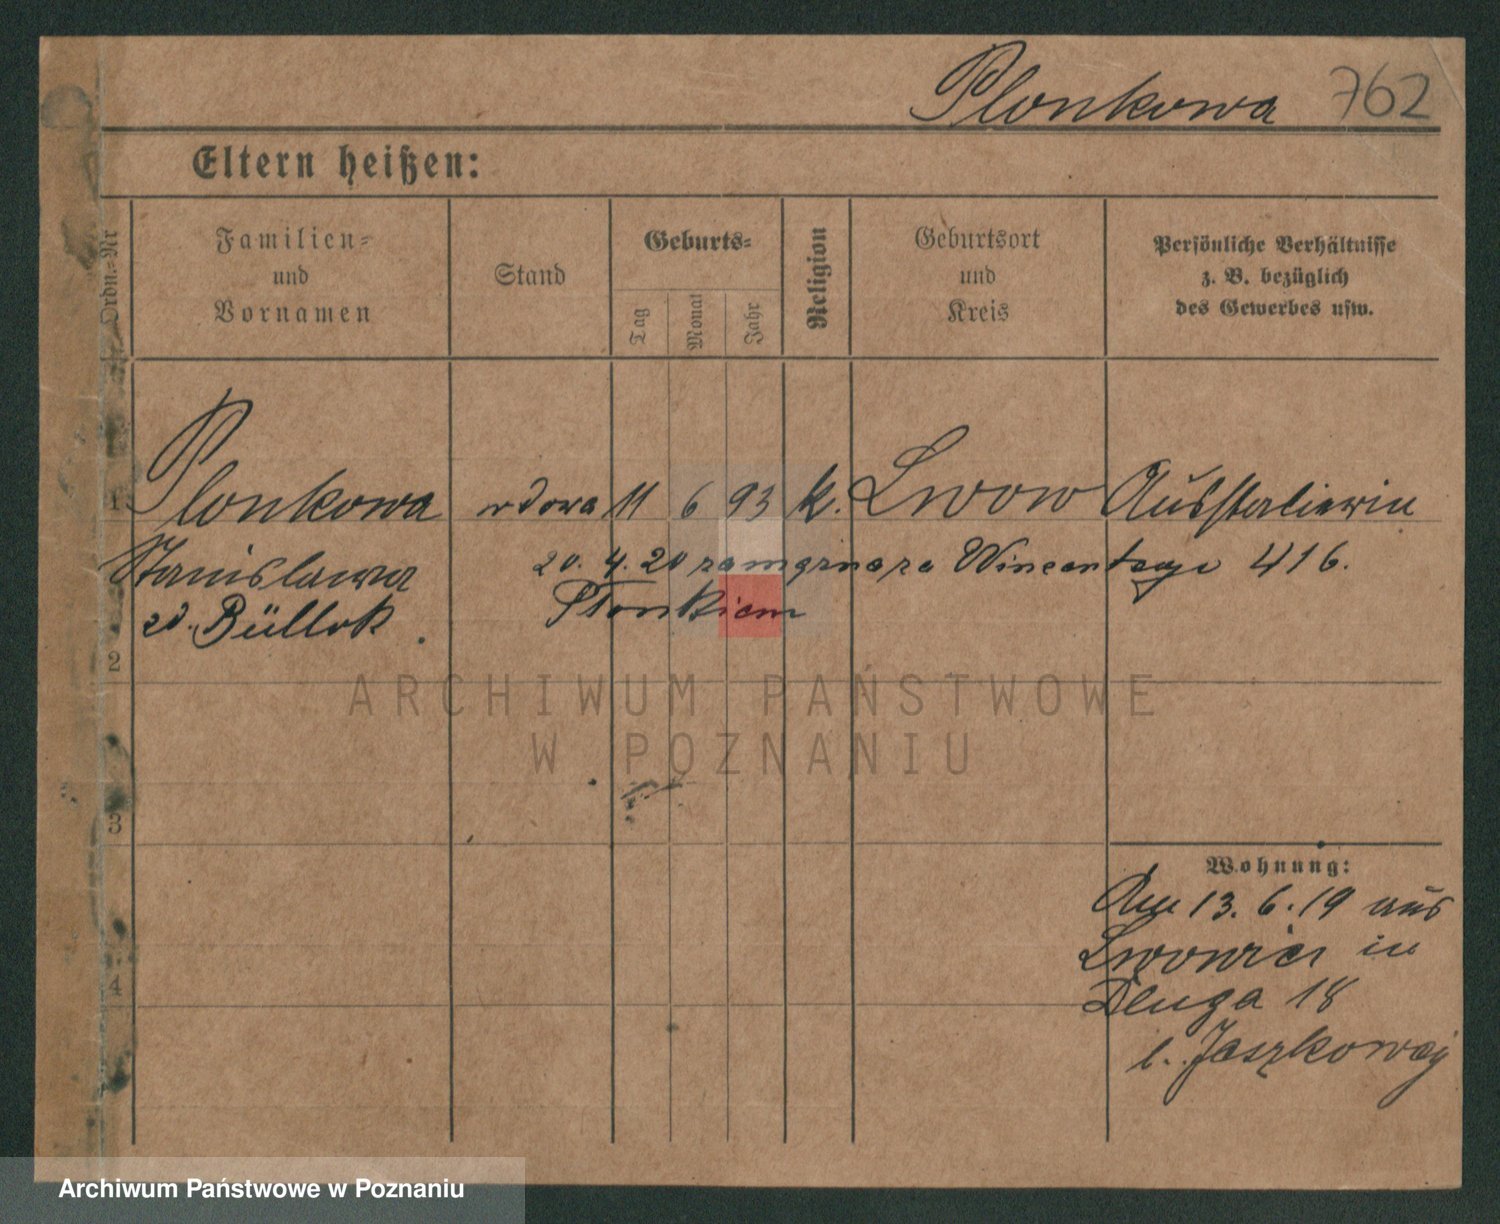 Plonkowa 762
Eltern heißen:
Ordn.-Nr
Familien-
und
Vornamen
Stand
Geburts-
Tag
Monat
Jahr
Religion
Geburtsort
und
Kreis
Persönliche Verhältnisse
z. B. bezüglich
des Gewerbes usw.
1 Plonkowa wdowa 11 6 93 k. Lwow
Stanisława 20. 4. 20 416.
zd. Büllok
2
ARCHIWUM PAŃSTWOWE
W POZNANIU
3
Wohnung:
13. 6. 19 aus
in
4
Dluga 18
b. Jaszkowej
Archiwum Państwowe w Poznaniu